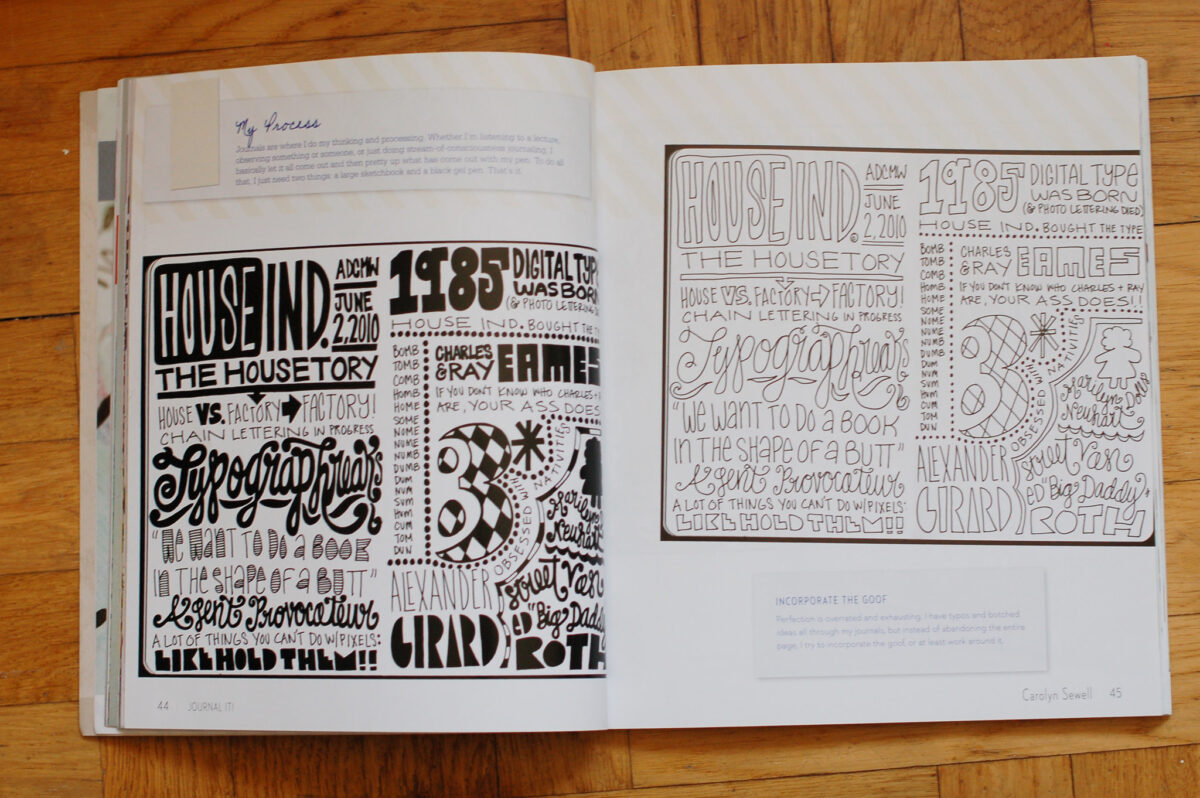 My Process
Journals are where I do my thinking and processing. Whether I'm listening to a lecture,
observing something or someone, or just doing stream-of-consciousness journaling, I
basically let it all come out and then pretty up what has come out with my pen. To do all
that, I just need two things: a large sketchbook and a black gel pen. That's it.
HOUSE IND.
ADCMW
JUNE
2, 2010
THE HOUSETORY
HOUSE VS. FACTORY FACTORY!
CHAIN LETTERING IN PROGRESS
Typographreaks
"WE WANT TO DO A BOOK
IN THE SHAPE OF A BUTT"
Agent Provocateur
A LOT OF THINGS YOU CAN'T DO W/PIXELS:
LIKE HOLD THEM!!
1985
DIGITAL TYPE
WAS BORN
(& PHOTO LETTERING
HOUSE IND. BOUGHT THE
BOMB
TOMB
COMB
HOMB
HOME
SOME
NOME
NUME
NUMB
DUMB
DUM
NUM
SUM
HUM
CUM
TOM
DUN
CHARLES
& RAY
EAMES
IF YOU DON'T KNOW WHO CHARLES +
ARE, YOUR ASS DOES
3
OBSESSED WITH NATIVITIES
Marilyn
Neuhart
ALEXANDER
GIRARD
street Van
ed "Big Daddy
ROTH
44 JOURNAL IT!
HOUSE IND.
ADCMW
JUNE
2, 2010
THE HOUSETORY
HOUSE VS. FACTORY FACTORY!
CHAIN LETTERING IN PROGRESS
Typographreaks
"WE WANT TO DO A BOOK
IN THE SHAPE OF A BUTT"
Agent Provocateur
A LOT OF THINGS YOU CAN'T DO W/PIXELS:
LIKE HOLD THEM!!
1985
DIGITAL TYPE
WAS BORN
(& PHOTO LETTERING DIED)
HOUSE IND. BOUGHT THE TYPE
BOMB
TOMB
COMB
HOMB
HOME
SOME
NOME
NUME
NUMB
DUMB
DUM
NUM
SUM
HUM
CUM
TOM
DUN
CHARLES
& RAY
EAMES
IF YOU DON'T KNOW WHO CHARLES + RAY
ARE, YOUR ASS DOES!!
3
OBSESSED WITH NATIVITIES
Marilyn
Neuhart Dolls
ALEXANDER
GIRARD
street Van
ed "Big Daddy"
ROTH
INCORPORATE THE GOOF
Perfection is overrated and exhausting. I have typos and botched
ideas all through my journals, but instead of abandoning the entire
page, I try to incorporate the goof, or at least work around it.
Carolyn Sewell 45